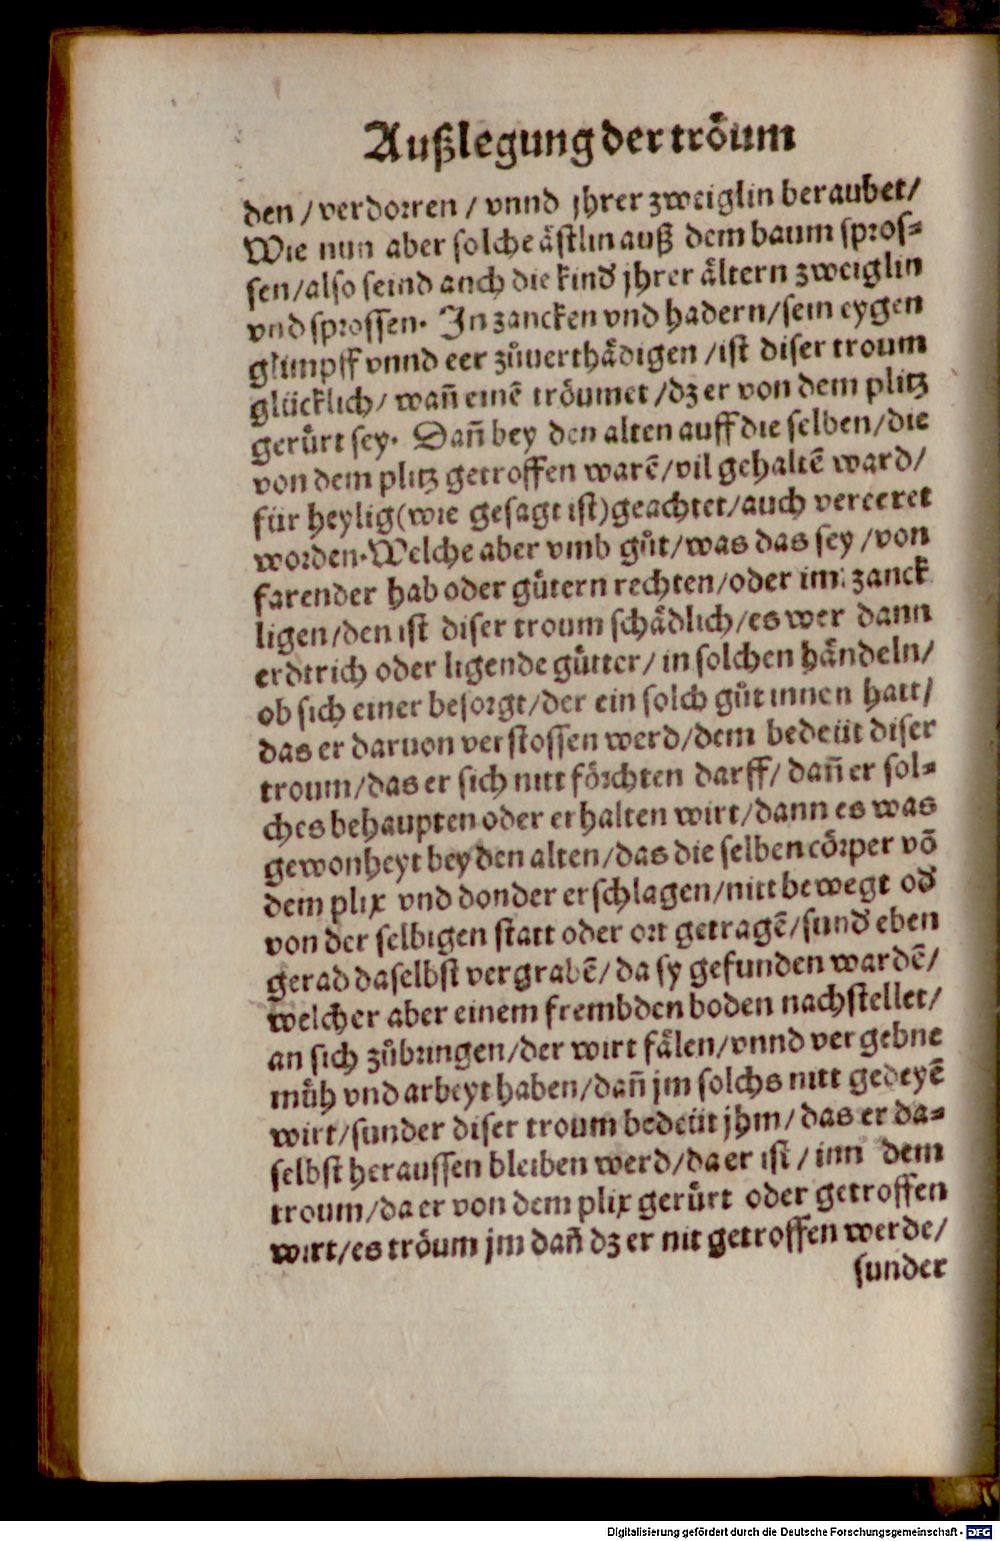 Außlegung der tröum
den / verdorren / vnnd jhrer zweiglin beraubet/
Wie nun aber solche ästlin auß dem baum spros⸗
sen/also seind auch die kind jhrer ältern zweiglin
vnd sprossen. In zancken vnd hadern/sein eygen
glimpff vnnd eer zůuerthädigen /ist diser troum
glücklich/ wañ einē tröumet /dz er von dem plitz
gerůrt sey. Dañ bey den alten auff die selben/die
von dem plitz getroffen warē/vil gehaltē ward/
für heylig(wie gesagt ist)geachtet/auch vereeret
worden. Welche aber vmb gůt/was das sey /von
farender hab oder gůtern rechten/oder im zanck
ligen/den ist diser troum schädlich/es wer dann
erdtrich oder ligende gůtter/ in solchen händeln/
ob sich einer besorgt/der ein solch gůt innen hatt/
das er daruon verstossen werd/dem bedeüt diser
troum/das er sich nitt förchten darff/ dañ er sol⸗
ches behaupten oder erhalten wirt/dann es was
gewonheyt bey den alten/das die selben cörper vō
dem plix vnd donder erschlagen/nitt bewegt od
von der selbigen statt oder ort getragē/sund eben
gerad daselbst vergrabē/ da sy gefunden wardē/
welcher aber einem frembden boden nachstellet/
an sich zůbringen/der wirt fälen/vnnd vergebne
můh vnd arbeyt haben/dañ jm solchs nitt gedeyē
wirt/sunder diser troum bedeüt jhm/das er da⸗
selbst heraussen bleiben werd/da er ist / inn dem
troum/da er von dem plix gerůrt oder getroffen
wirt/es tröum jm dañ dz er nit getroffen werde/
sunder
Digitalisierung gefördert durch die Deutsche Forschungsgemeinschaft - DFG